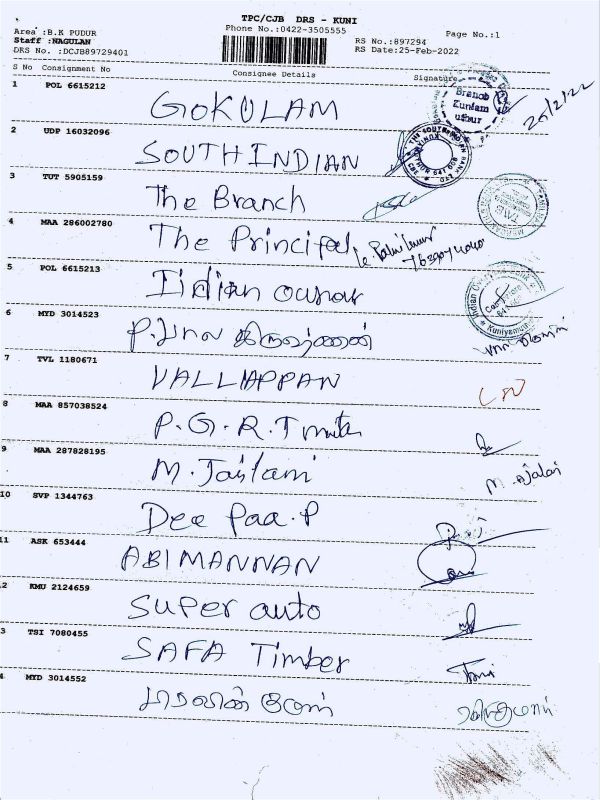 TPC/CJB DRS - KUNI
Phone No.:0422-3505555
Area :B.K PUDUR
Staff :NAGULAN
DRS No. :DCJB89729401
RS No.:897294
RS Date:25-Feb-2022
Page No.:1
S No Consignment No Consignee Details Signature
1 POL 6615212 GOKULAM
Branch
Kuniam
uthur
25/2/22
2 UDP 16032096 SOUTH INDIAN
3 TUT 5905159 The Branch
4 MAA 286002780 The Principal
5 POL 6615213 Indian
6 MYD 3014523
7 TVL 1180671 VALLIAPPAN
8 MAA 857038524 P.G.R.T
9 MAA 287828195 M. Jailani
10 SVP 1344763 Dee paa.P
11 ASK 653444 ABIMANNAN
2 KMU 2124659 Super auto
3 TSI 7080455 SAFA Timber
4 MYD 3014552